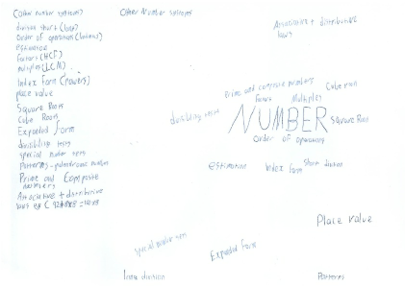 Other number systems
Order of operations
estimation
factors (HCF)
multiples (LCM)
Index Form (powers)
place value
Square Roots
Cube Roots
Expanded form
divisibility tests
special number sets
Patterns - palindromic numbers
Prime and Composite
numbers
Associative + distributive
laws
Other Number systems
Associative + distributive
laws
Prime and composite numbers
Cube root
Factors
Multiples
divisibility tests
NUMBER
Square Root
Order of operations
Estimation
Index form
Short division
Place Value
special number sets
Expanded Form
Long division
Patterns